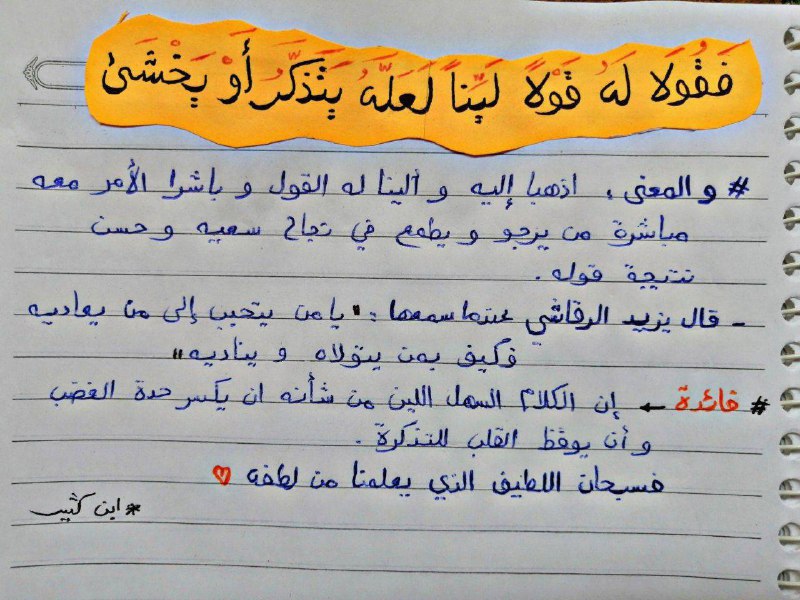 فَقُولَا لَهُ قَوْلًا لَيِّناً لَعَلَّهُ يَتَذَكَّرُ أَوْ يَخْشَىٰ
# و المعنى : اذهبا إليه و ألينا له القول و باشرا الأمر معه
مباشرة من يرجو و يطمع في نجاح سعيه و حسن
نتيجة قوله .
- قال يزيد الرقاشي عندما سمعها : "يا من يتحبب إلى من يعاديه
فكيف بمن يتولاه و يناديه"
# فائدة ← إن الكلام السهل اللين من شأنه ان يكسر حدة الغضب
و أن يوقظ القلب للتذكرة .
فسبحان اللطيف الذي يعلمنا من لطفه ♡
* ابن كثير